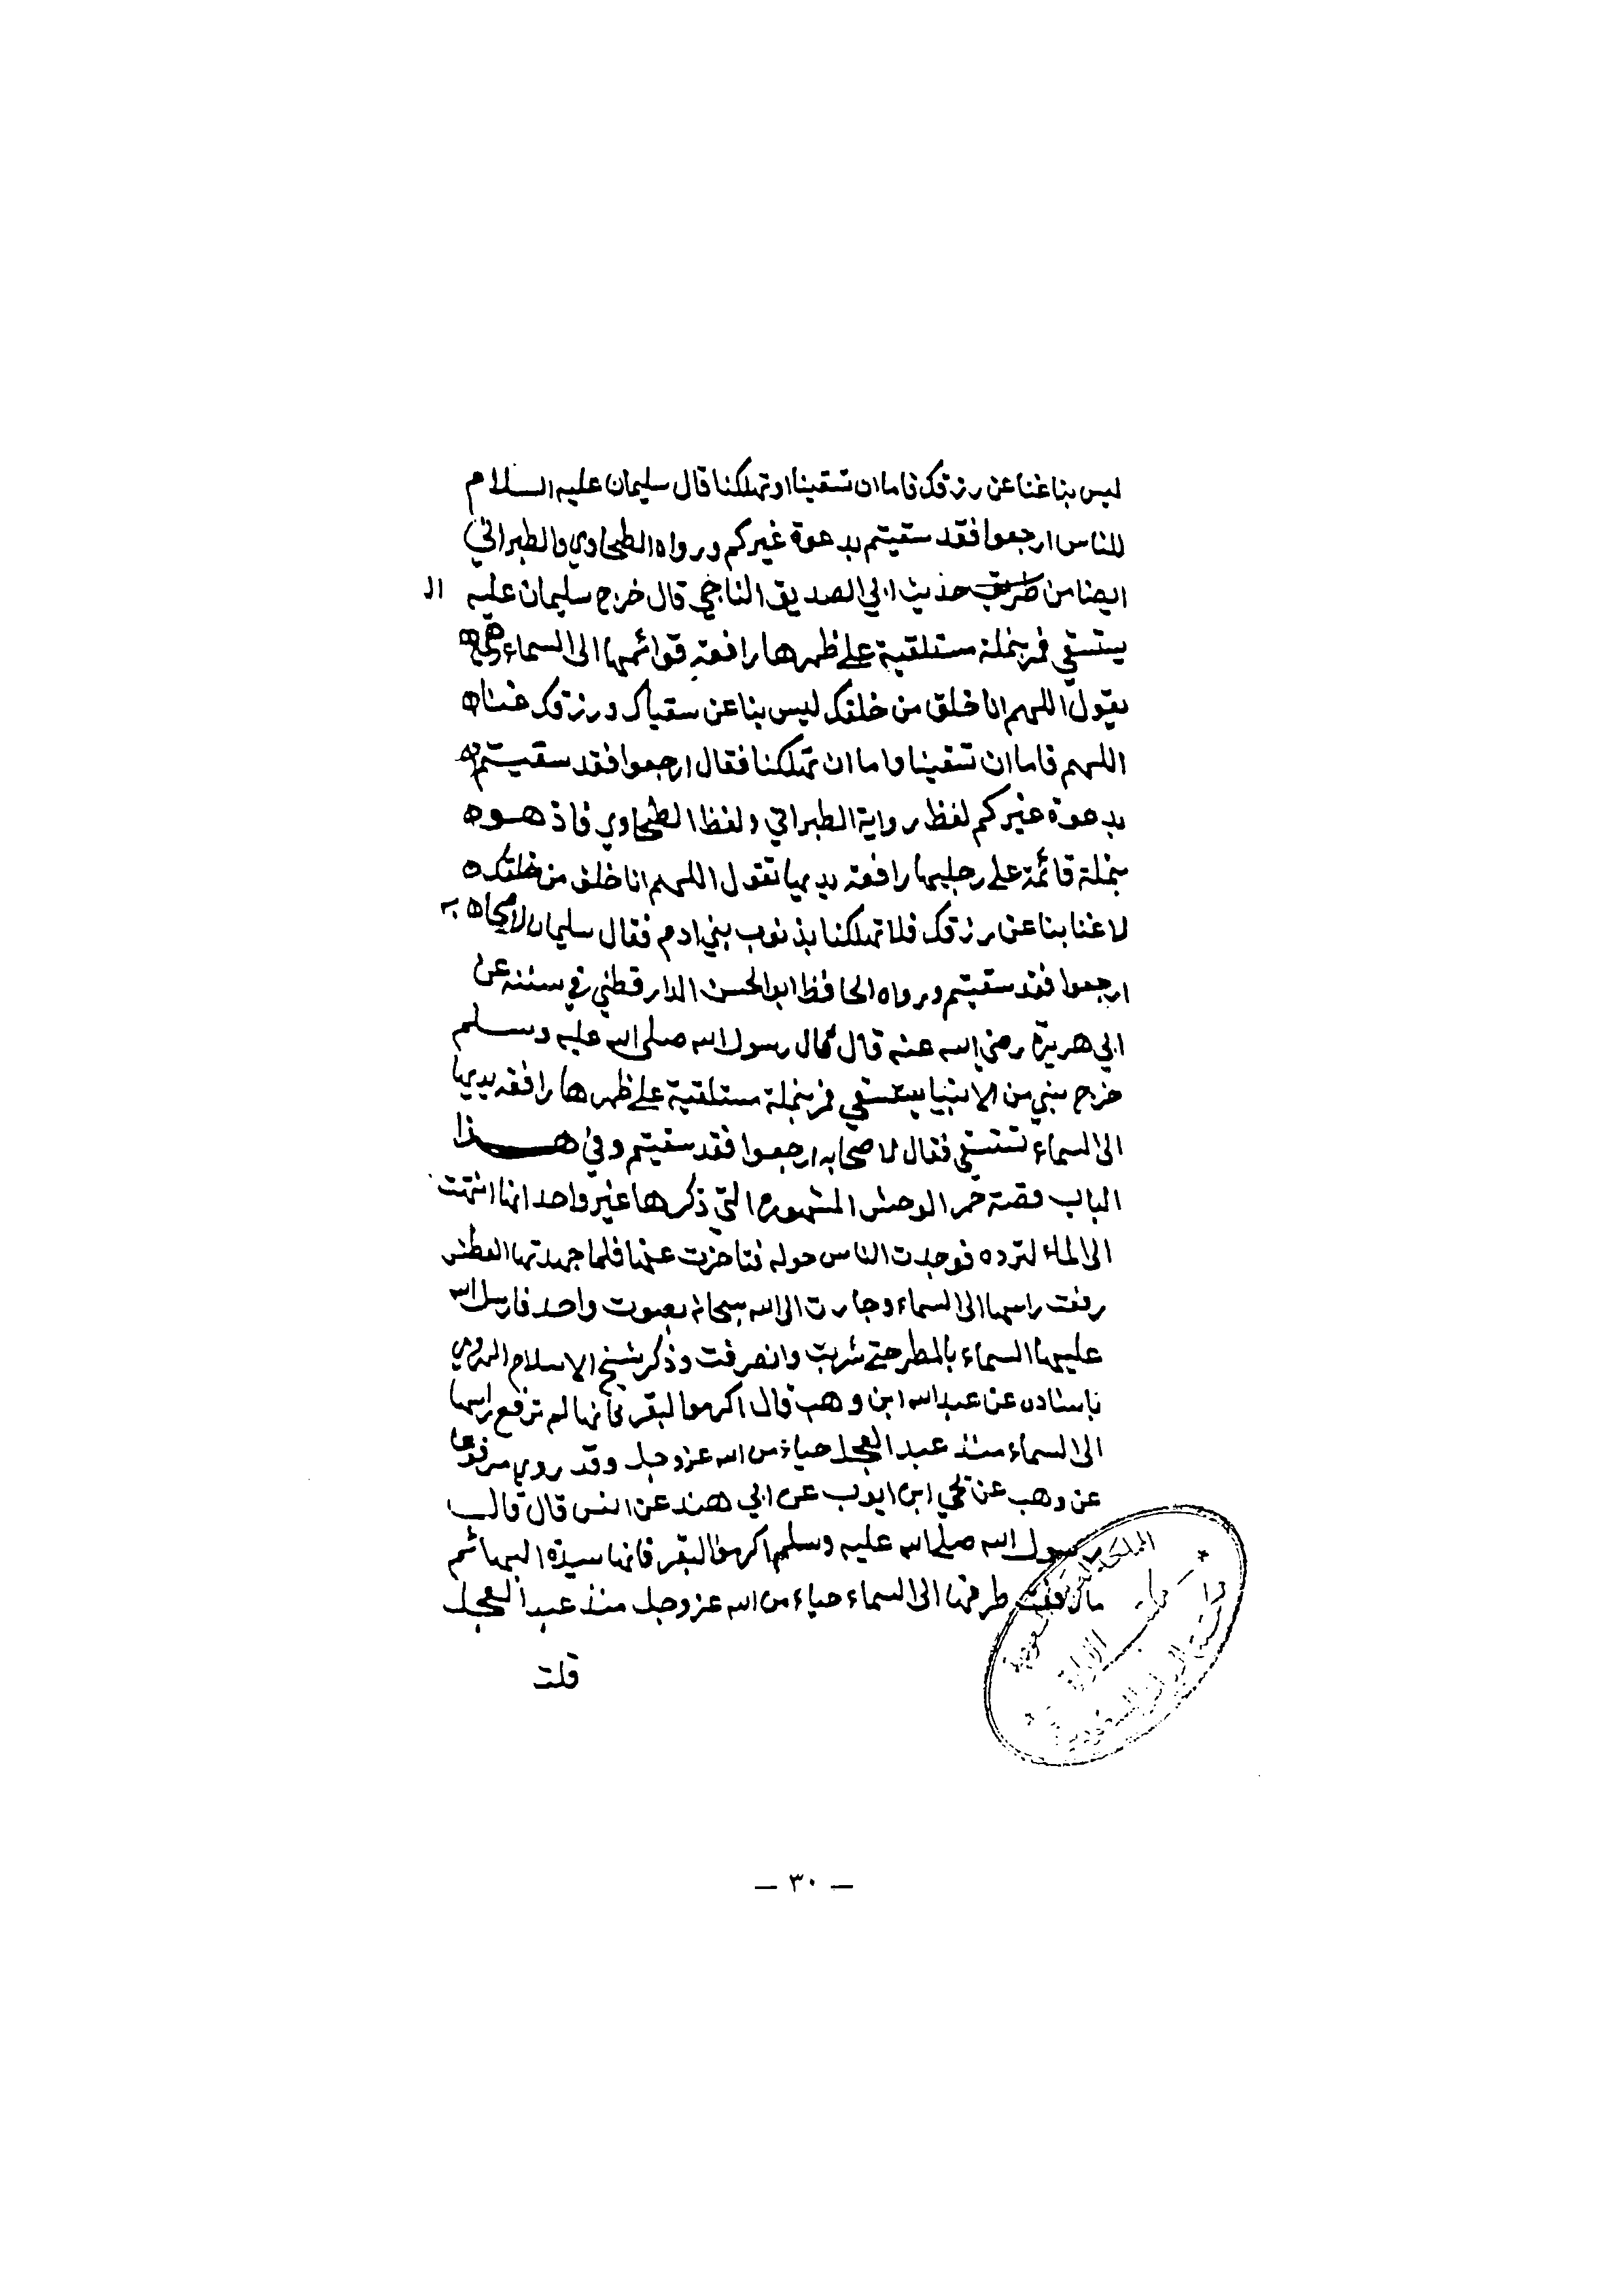 ليس بنا غنا عن رزقك فاما ان تسقينا او تهلكنا قال سليمان عليه السلام
للناس ارجعوا فقد سقيتم بدعوة غيركم ورواه الطحاوي والطبراني
ايضا من طريق حديث ابي الصديق الناجي قال خرج سليمان عليه ال
يستسقي فمر بنملة مستلقية على ظهرها رافعة قوائمها الى السماء وهي
تقول اللهم انا خلق من خلقك ليس بنا عن سقياك ورزقك غناه
اللهم فاما ان تسقينا واما ان تهلكنا فقال ارجعوا فقد سقيتم
بدعوة غيركم لفظ رواية الطبراني ولفظ الطحاوي فاذ هو
بنملة قائمة على رجليها رافعة يديها تقول اللهم انا خلق من خلقك
لا غنا بنا عن رزقك فلا تهلكنا بذنوب بني ادم فقال سليمان لاصحابه
ارجعوا فقد سقيتم ورواه الحافظ ابو الحسن الدارقطني في سننه عن
ابي هريرة رضي الله عنه قال قال رسول الله صلى الله عليه وسلم
خرج نبي من الانبيا يستسقي فمر بنملة مستلقية على ظهرها رافعة يديها
الى السماء تستسقي فقال لاصحابه ارجعوا فقد سقيتم وفي هذا
الباب قصة حمر الوحش المشهورة التي ذكرها غير واحد انها انتهت
الى الماء لترده فوجدت الناس حوله فتاخرت عنها فلما جهدتها العطش
رفعت راسها الى السماء وجارت الى الله سبحانه بصوت واحد فارسل الله
عليها السماء بالمطر حتى شربت وانصرفت وذكر شيخ الاسلام الهروي
باسناده عن عبد الله ابن وهب قال اكرموا البقر فانها لم ترفع راسها
الى السماء منذ عبد العجل حياء من الله عز وجل وقد روي مرفوعا
عن وهب عن يحي ابن ايوب عن ابي هند عن انس قال قال
رسول الله صلى الله عليه وسلم اكرموا البقر فانها سيدة البهائم
ما رفعت طرفها الى السماء حياء من الله عز وجل منذ عبد العجل
قلت
المملكة العربية السعودية
— ٣٠ —